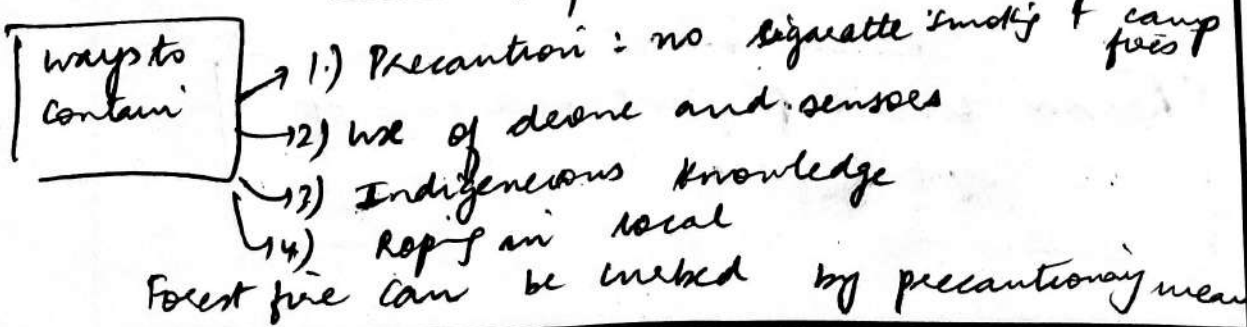 ways to
contain
1.) Precaution : no sigaratte smoking & camp
fires
2) use of drone and sensors
3) Indigeneious knowledge
4) Roping in local
Forest fire can be curbed by precautionary mea